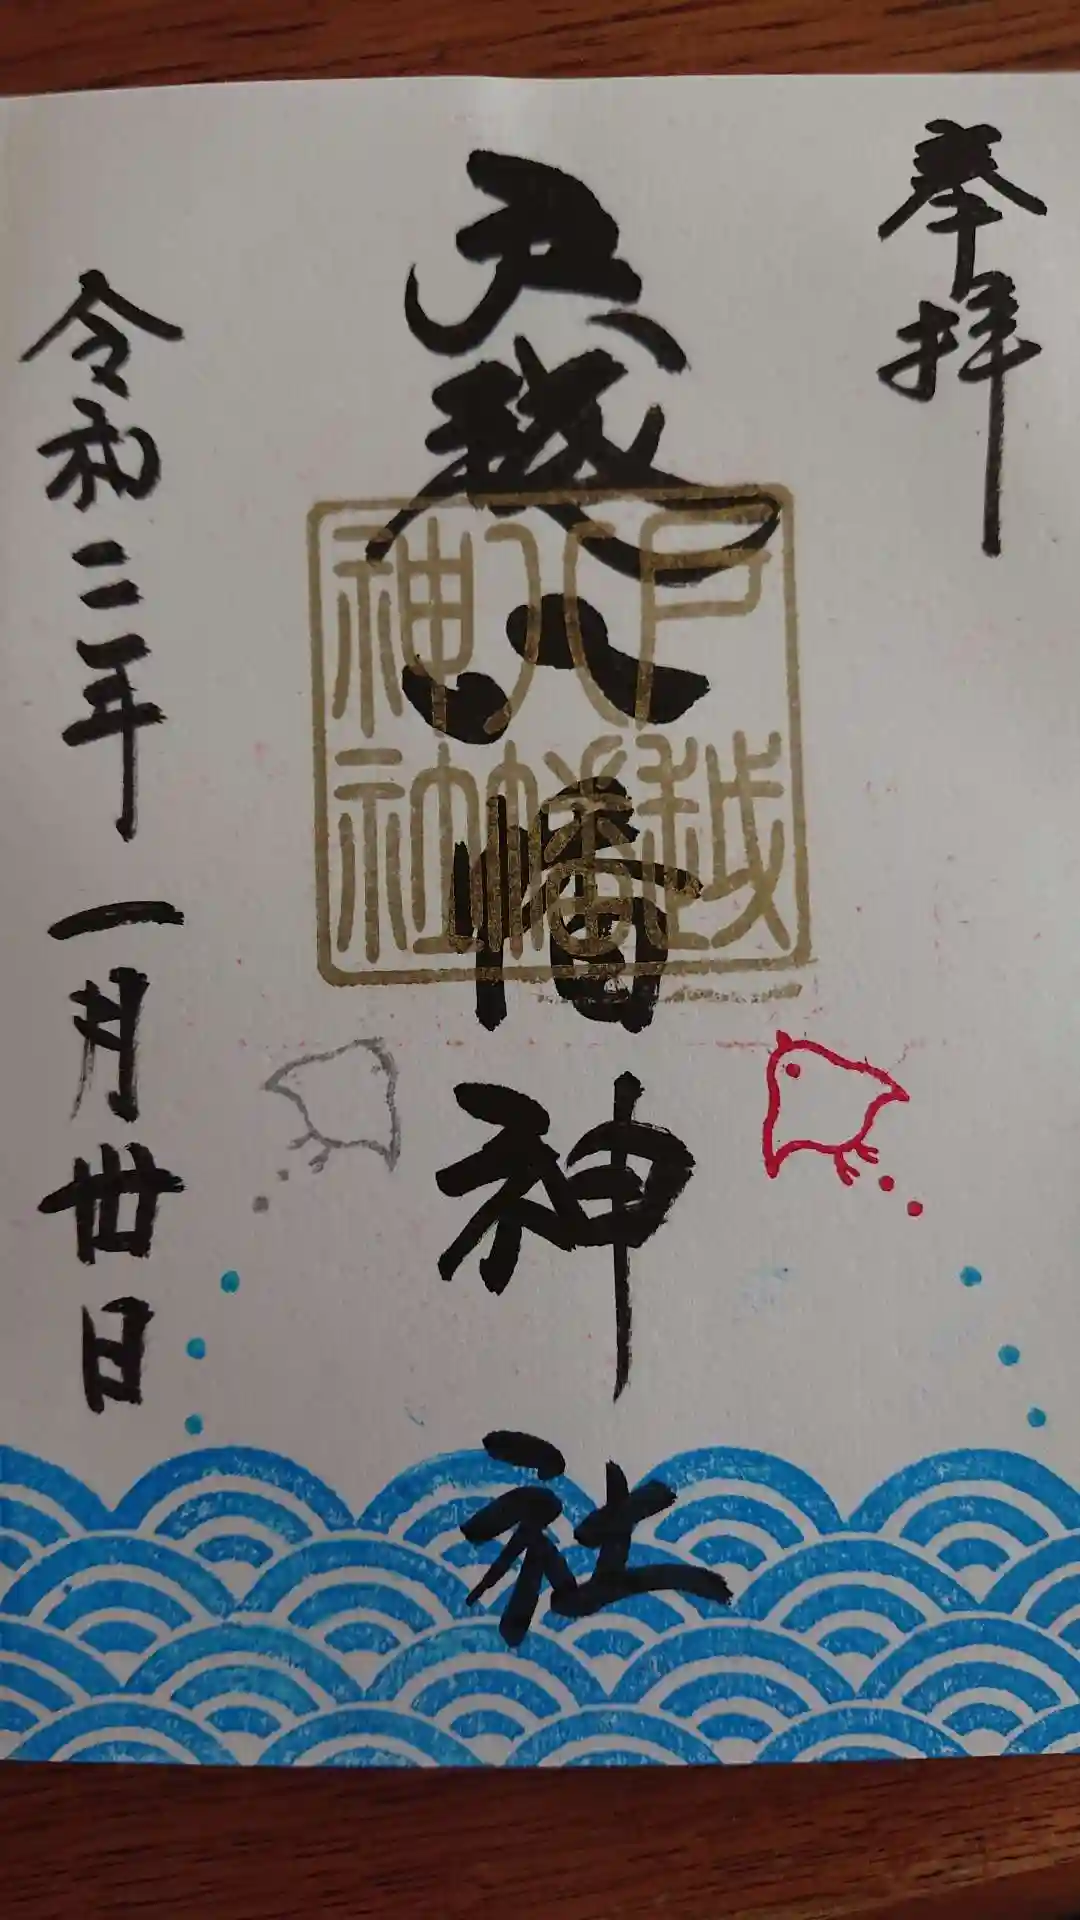 奉拝
戸越八幡神社
戸越
八幡
神社
令和二年一月丗日